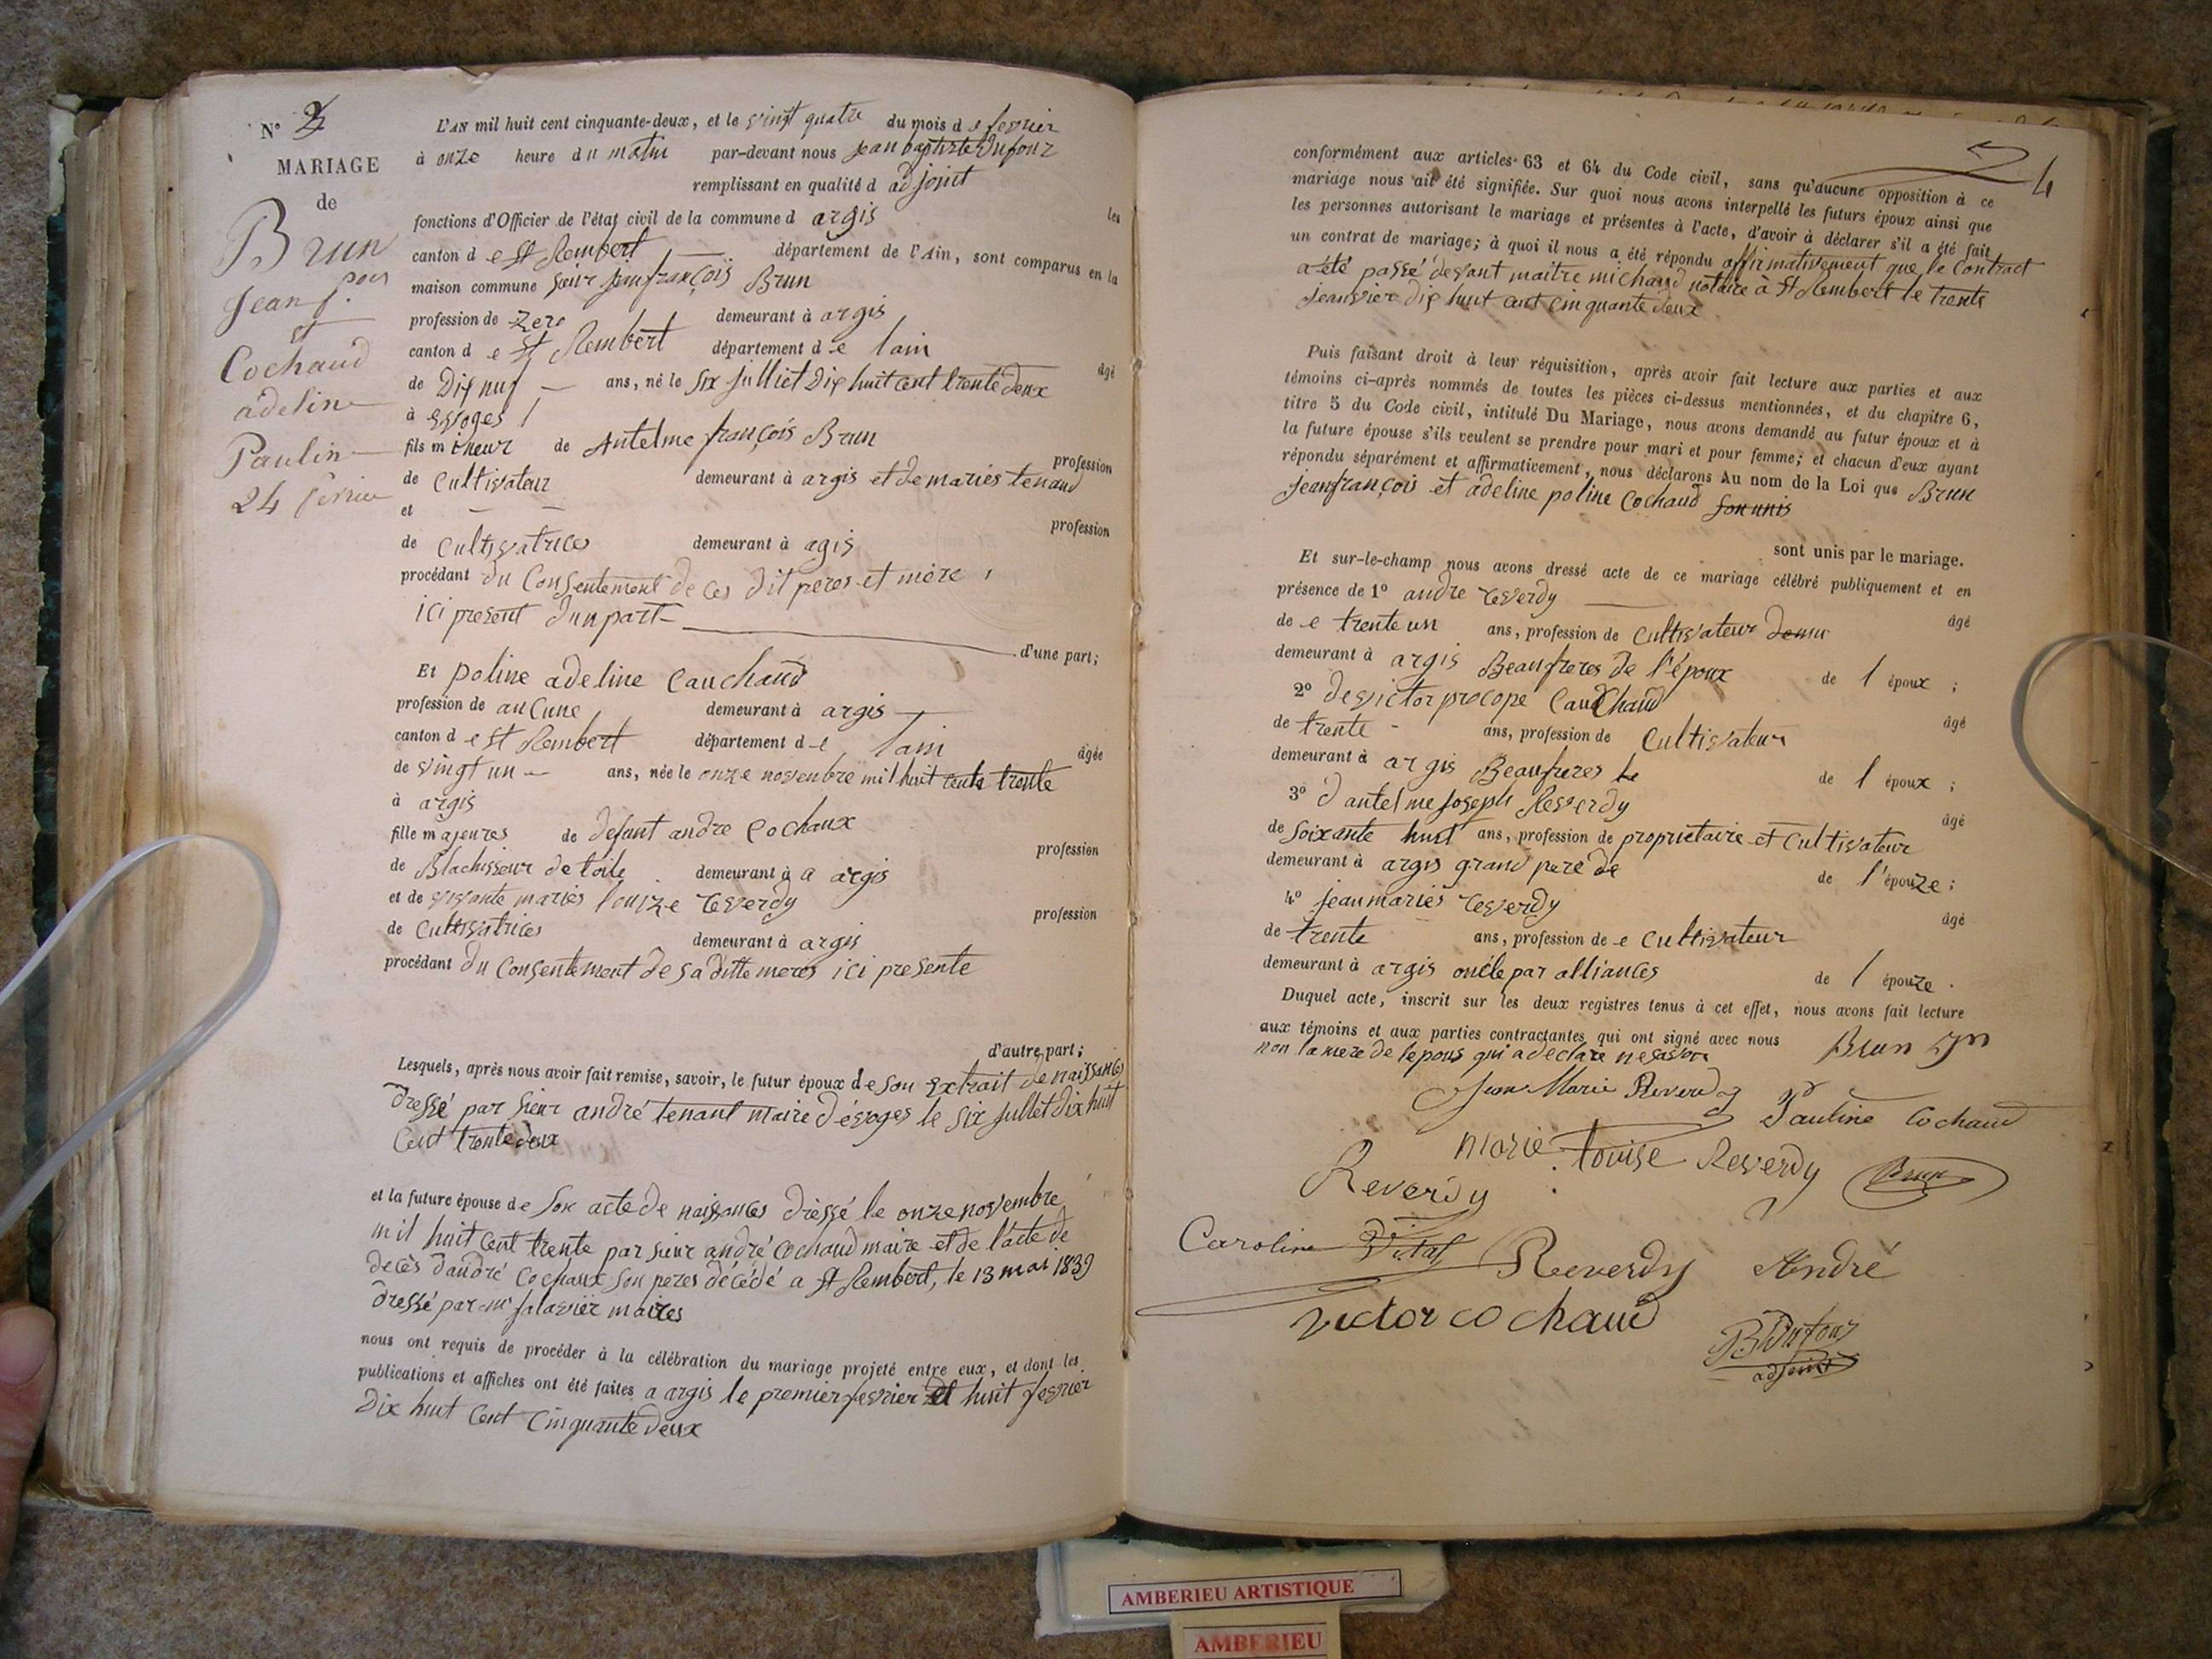 N° 2
MARIAGE
de
Brun
Jean f.çois
et
Cochaud
adeline
Pauline
24 février
L'AN mil huit cent cinquante-deux, et le vingt quatre du mois d e fevrier
à onze heure du matin par-devant nous jean baptiste Dufour
remplissant en qualité d adjoint les
fonctions d'Officier de l'état civil de la commune d argis
canton d e St Rembert département de l'Ain, sont comparus en la
maison commune sieur jeanfrançois Brun
profession de zero demeurant à argis
canton d e St Rembert département d e lain âgé
de Dif nuf ans, né le six julliet Dix huit cent trente deux
à evoges
fils mineur de Antelme françois Brun profession
de Cultivateur demeurant à argis et de mariés tenand
et — — profession
de Cultivatrices demeurant à agis
procédant du Consentement de ces dit peres et mère,
ici present dun part d'une part;
Et poline adeline Cauchaud
profession de auCune demeurant à argis
canton d e st Rembert département d e lain âgée
de vingt un ans, née le onze novenbre mil huit cents trente
à argis
fille majeures de defunt andre Cochaux profession
de Blachisseur de toile demeurant à a argis
et de vivante mariés louize reverdy profession
de Cultivatrices demeurant à argis
procédant du Consentement de sa ditte meres ici presente
d'autre part;
Lesquels, après nous avoir fait remise, savoir, le futur époux de son extrait de naissances
Dressé par sieur andré tenant maire d'évoges le six jullet dix huit
Cent trente deux
et la future épouse de son acte de naissances dressé le onze novembre
mil huit cent trente par sieur andré Cochaud maire et de l'acte de
decès d'andré Cochaux son peres décédé a St Rembert, le 13 mai 1839
Dressé par mr salavier maires
nous ont requis de procéder à la célébration du mariage projeté entre eux, et dont les
publications et affiches ont été faites a argis le premier fevrier et huit fevrier
Dix huit Cent Cinquante deux
4
conformément aux articles 63 et 64 du Code civil, sans qu'aucune opposition à ce
mariage nous ait été signifiée. Sur quoi nous avons interpellé les futurs époux ainsi que
les personnes autorisant le mariage et présentes à l'acte, d'avoir à déclarer s'il a été fait
un contrat de mariage; à quoi il nous a été répondu affirmativement que le Contract
a été passé devant maitre michaud notaire à St Rembert le trente
jeanvier dix huit cent cinquante deux
Puis faisant droit à leur réquisition, après avoir fait lecture aux parties et aux
témoins ci-après nommés de toutes les pièces ci-dessus mentionnées, et du chapitre 6,
titre 5 du Code civil, intitulé Du Mariage, nous avons demandé au futur époux et à
la future épouse s'ils veulent se prendre pour mari et pour femme; et chacun d'eux ayant
répondu séparément et affirmativement, nous déclarons Au nom de la Loi que Brun
jeanfrançois et adeline poline Cochaud son unis
sont unis par le mariage.
Et sur-le-champ nous avons dressé acte de ce mariage célébré publiquement et en
présence de 1° andre reverdy âgé
de e trente un ans, profession de Cultivateur
demeurant à argis Beaufreres de l'époux de l époux;
2° de victor procope Cauchaud âgé
de trente ans, profession de Cultivateur
demeurant à argis Beaufreres de l époux;
3° d antelme joseph Reverdy âgé
de soixante huit ans, profession de proprietaire et Cultivateur
demeurant à argis grand pere de de l'épouze;
4° jean mariés reverdy âgé
de trente ans, profession de e Cultivateur
demeurant à argis oncle par alliances de l épouze.
Duquel acte, inscrit sur les deux registres tenus à cet effet, nous avons fait lecture
aux témoins et aux parties contractantes qui ont signé avec nous Brun
non la mere de lepous qui a declare ne savoir
Jean Marie Reverdy
Pauline Cochaud
marie louise Reverdy Brun
Reverdy
Caroline Vital Reverdy André
victor cochaud
B Dufour
adjoint
AMBERIEU ARTISTIQUE
AMBERIEU